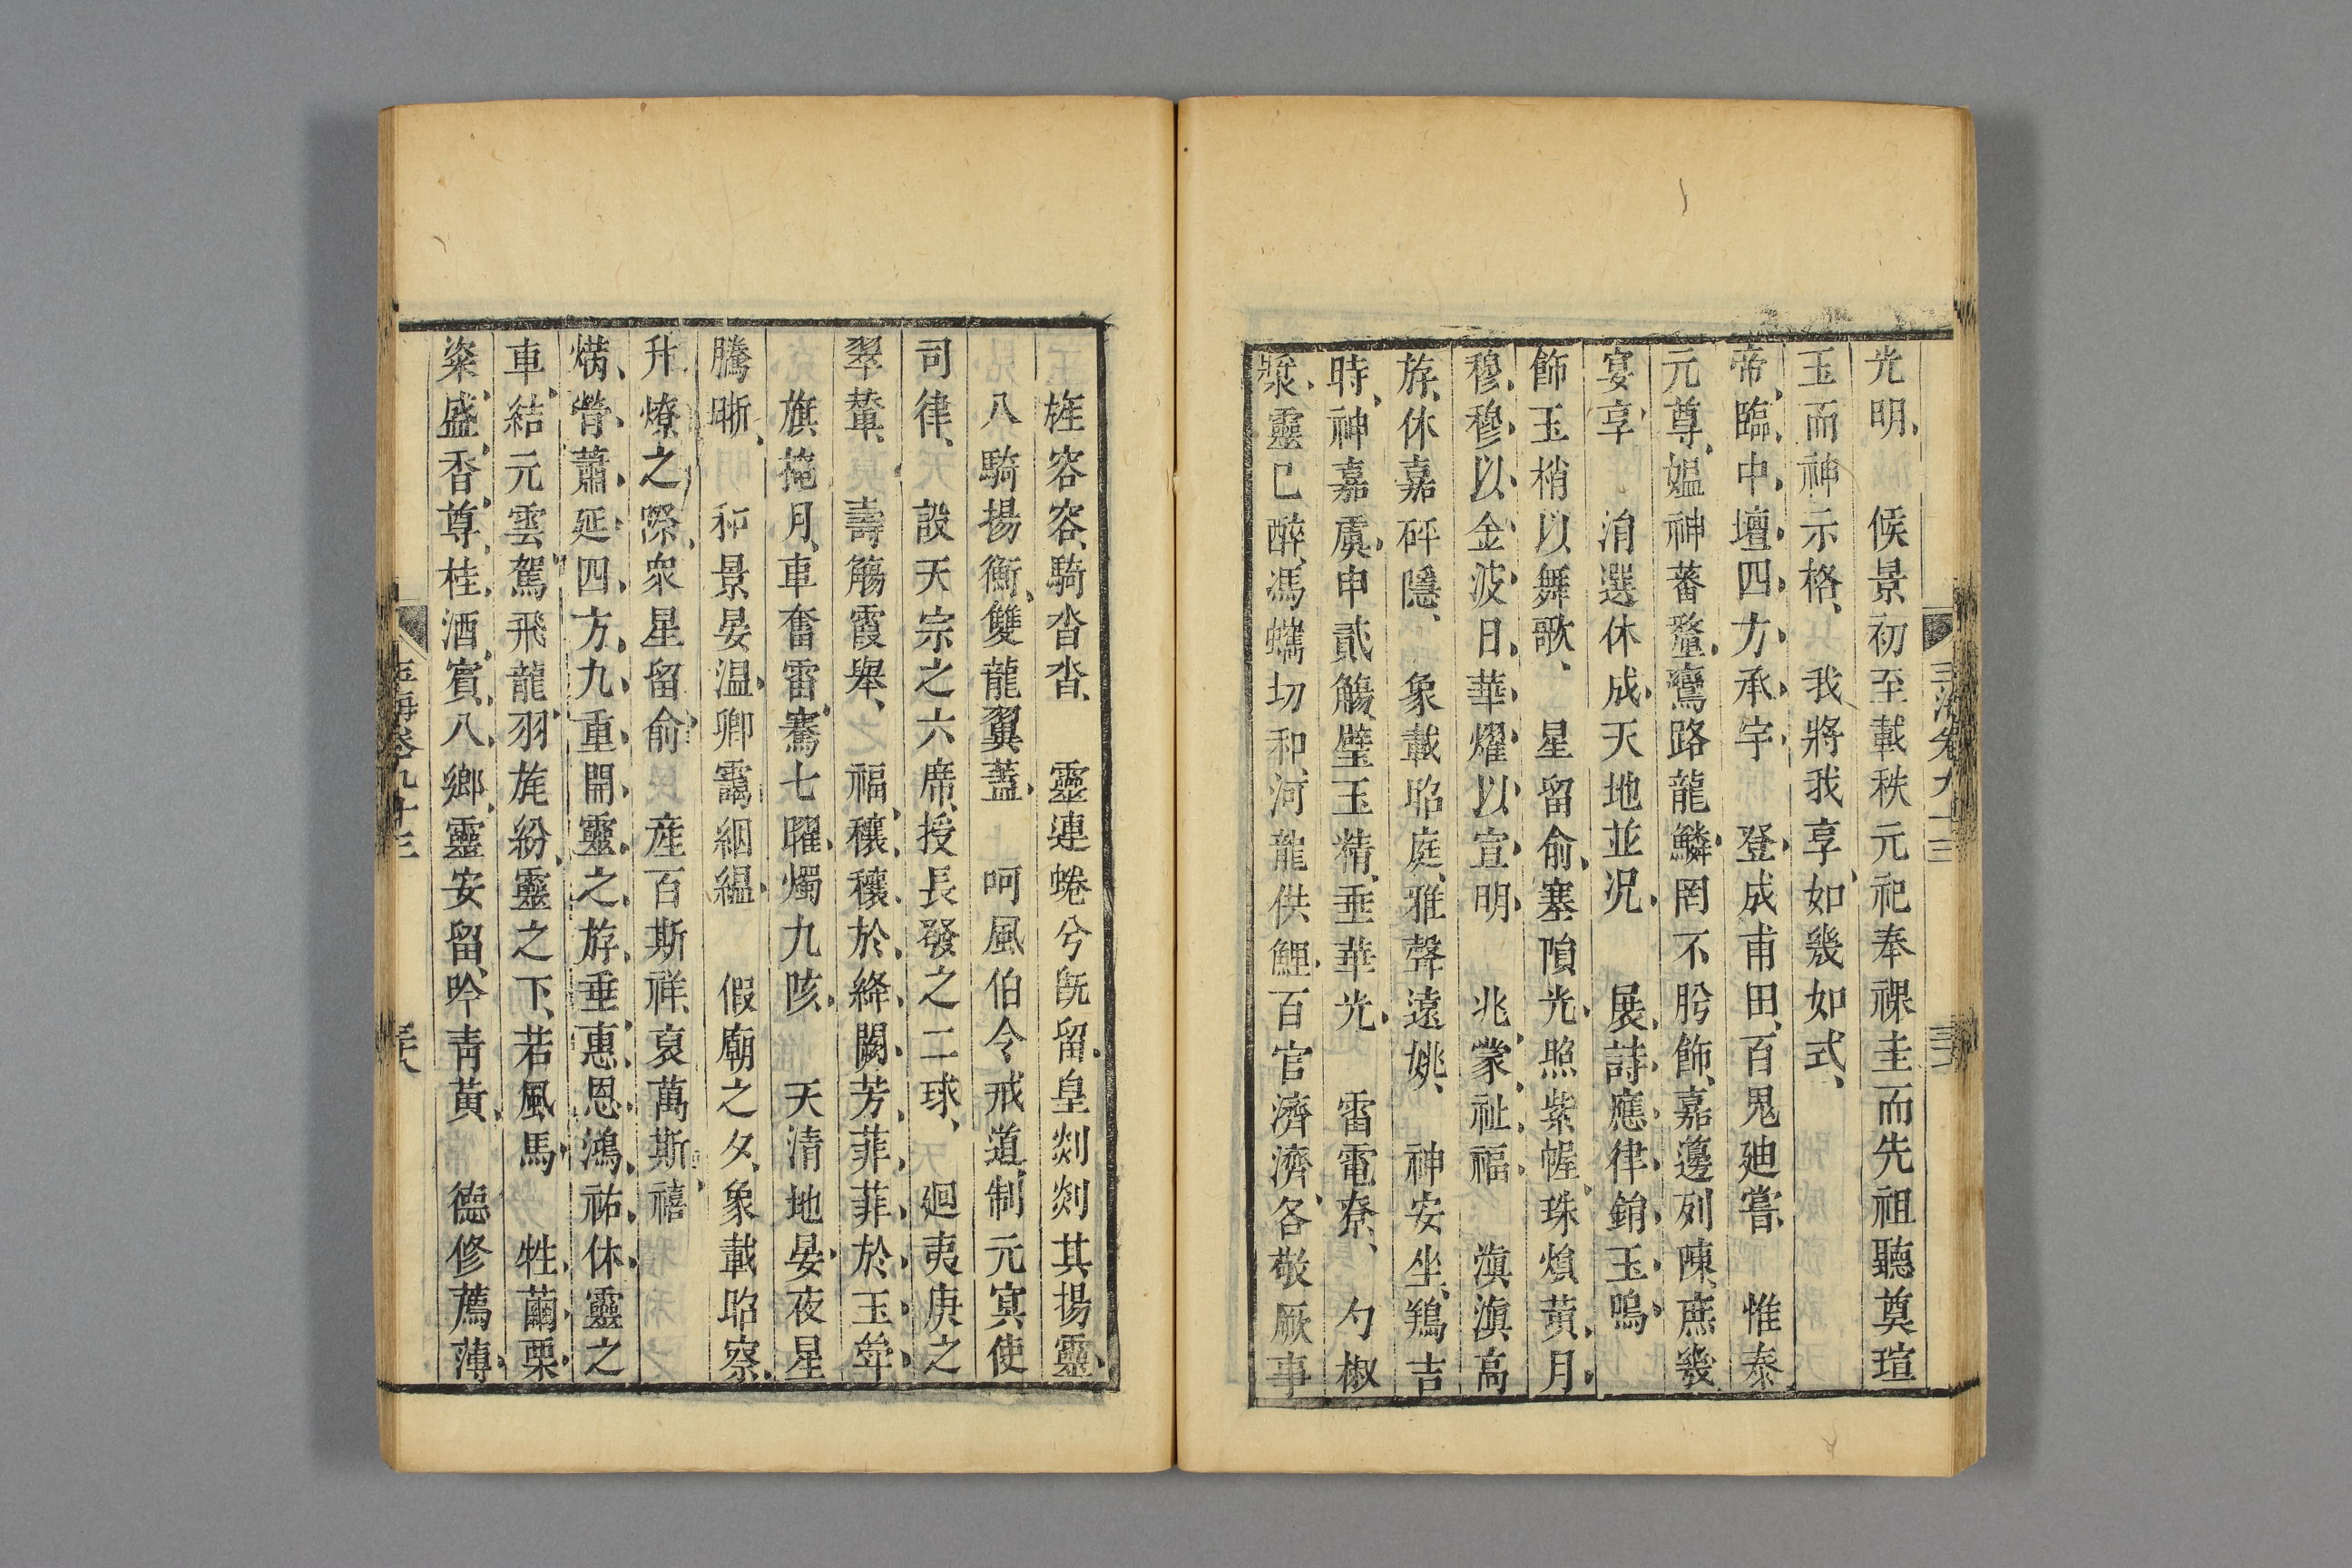 光明、　候景初至載秩元祀奉祼圭而先祖聽奠瑄
玉而神示格、　我將我享、如幾如式、
帝臨中壇四方承宇　登成甫田、百鬼廸嘗、　惟泰
元尊媪神蕃釐、鸞路龍鱗罔不肸飾、嘉籩列陳、庶幾
宴享　消選休成、天地並况　展詩應律鋗玉鳴
飾玉梢以舞歌、　星留俞、塞隕光、照紫幄、珠熉黃、月
穆穆以金波日華燿以宣明　兆蒙祉福　滇滇高
斿、休嘉砰隱、　象載昭庭、雅聲遠姚、　神安坐、鴹吉
時、神嘉虞、申貳觴、璧玉精、垂華光　雷電尞、　勺椒
漿、靈已醉、馮蠵切和、河龍供鯉、百官濟濟、各敬厥事
玉海卷九十三
旌容容、騎沓沓、　靈連蜷兮旣留、皇剡剡其揚靈、
八騎揚衡、雙龍翼蓋、　呵風伯令戒道、制元冥使
司律、　設天宗之六席、授長發之二球、　廻夷庚之
翠輦、　壽觴霞舉、　福穰穰於絳闕、芳菲菲於玉斝
旗掩月、車奮雷、騫七曜燭九陔、　天清地晏、夜星
騰晰、　和景晏温、卿靄絪緼　假廟之夕、象載昭察、
升燎之際、衆星留俞　産百斯祥、裒萬斯禧
焫膋蕭、延四方、九重開、靈之斿、垂惠恩、鴻祐休、靈之
車、結元雲、駕飛龍、羽旄紛、靈之下、若風馬、　牲繭栗
粢盛香、尊桂酒、賓八鄉、靈安留、吟青黃、　德修薦薄
玉海卷九十三